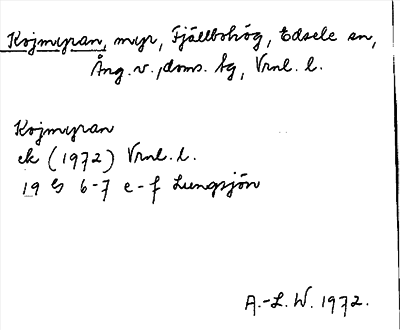 Kojmyran, myr, Fjällbohög, Edsele sn,
Ång. v., doms. bg, Vrnl. l.
Kojmyran
ek (1972) Vrnl. l.
19 G 6-7 e-f Lungsjön
A.-L. W. 1972.